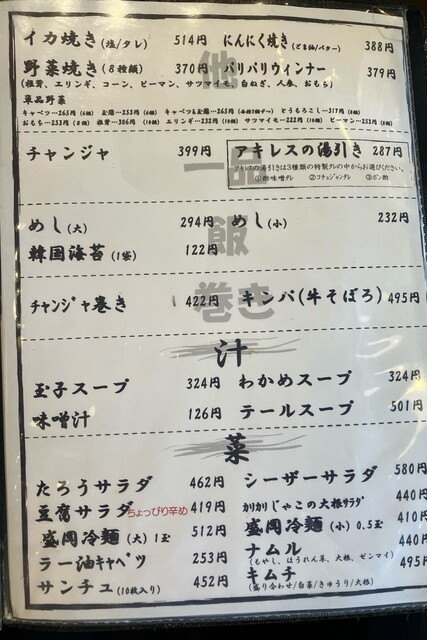 他
イカ焼き(塩/タレ) 514円 にんにく焼き(ごま油/バター) 388円
野菜焼き(8種類) 370円 パリパリウィンナー 379円
(椎茸、エリンギ、コーン、ピーマン、サツマイモ、白ねぎ、人参、おもち)
単品野菜
キャベツ…265円(6個) 玉葱…253円(6個) キャベツ&玉葱…265円 とうもろこし…317円(8個)
おもち…253円(8個) 椎茸…306円(10個) エリンギ…232円(10個) サツマイモ…222円(10個) ピーマン…253円(8個)
一品
チャンジャ 399円 アキレスの湯引き 287円
アキレスの湯引きは3種類の特製タレの中からお選びください。
①酢味噌タレ ②コチュジャンタレ ③ポン酢
飯
めし(大) 294円 めし(小) 232円
韓国海苔(1袋) 122円
巻き
チャンジャ巻き 422円 キンパ(牛そぼろ) 495円
汁
玉子スープ 324円 わかめスープ 324円
味噌汁 126円 テールスープ 501円
菜
たろうサラダ 462円 シーザーサラダ 580円
豆腐サラダちょっぴり辛め 419円 カリカリじゃこの大根サラダ 440円
盛岡冷麺(大)1玉 512円 盛岡冷麺(小)0.5玉 410円
ラー油キャベツ 253円 ナムル 440円
(もやし、ほうれん草、大根、ゼンマイ)
サンチュ(10枚入り) 452円 キムチ 495円
(盛り合わせ/白菜/きゅうり/大根)